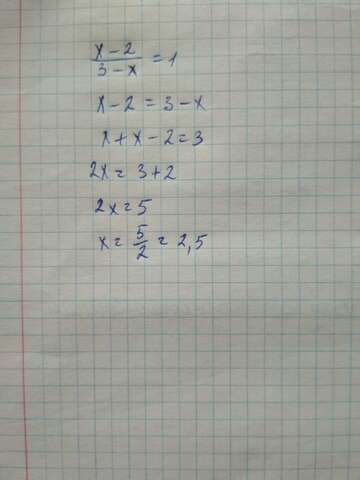 x-2/3-x = 1
x-2 = 3-x
x+x-2=3
2x = 3+2
2x=5
x= 5/2 = 2,5